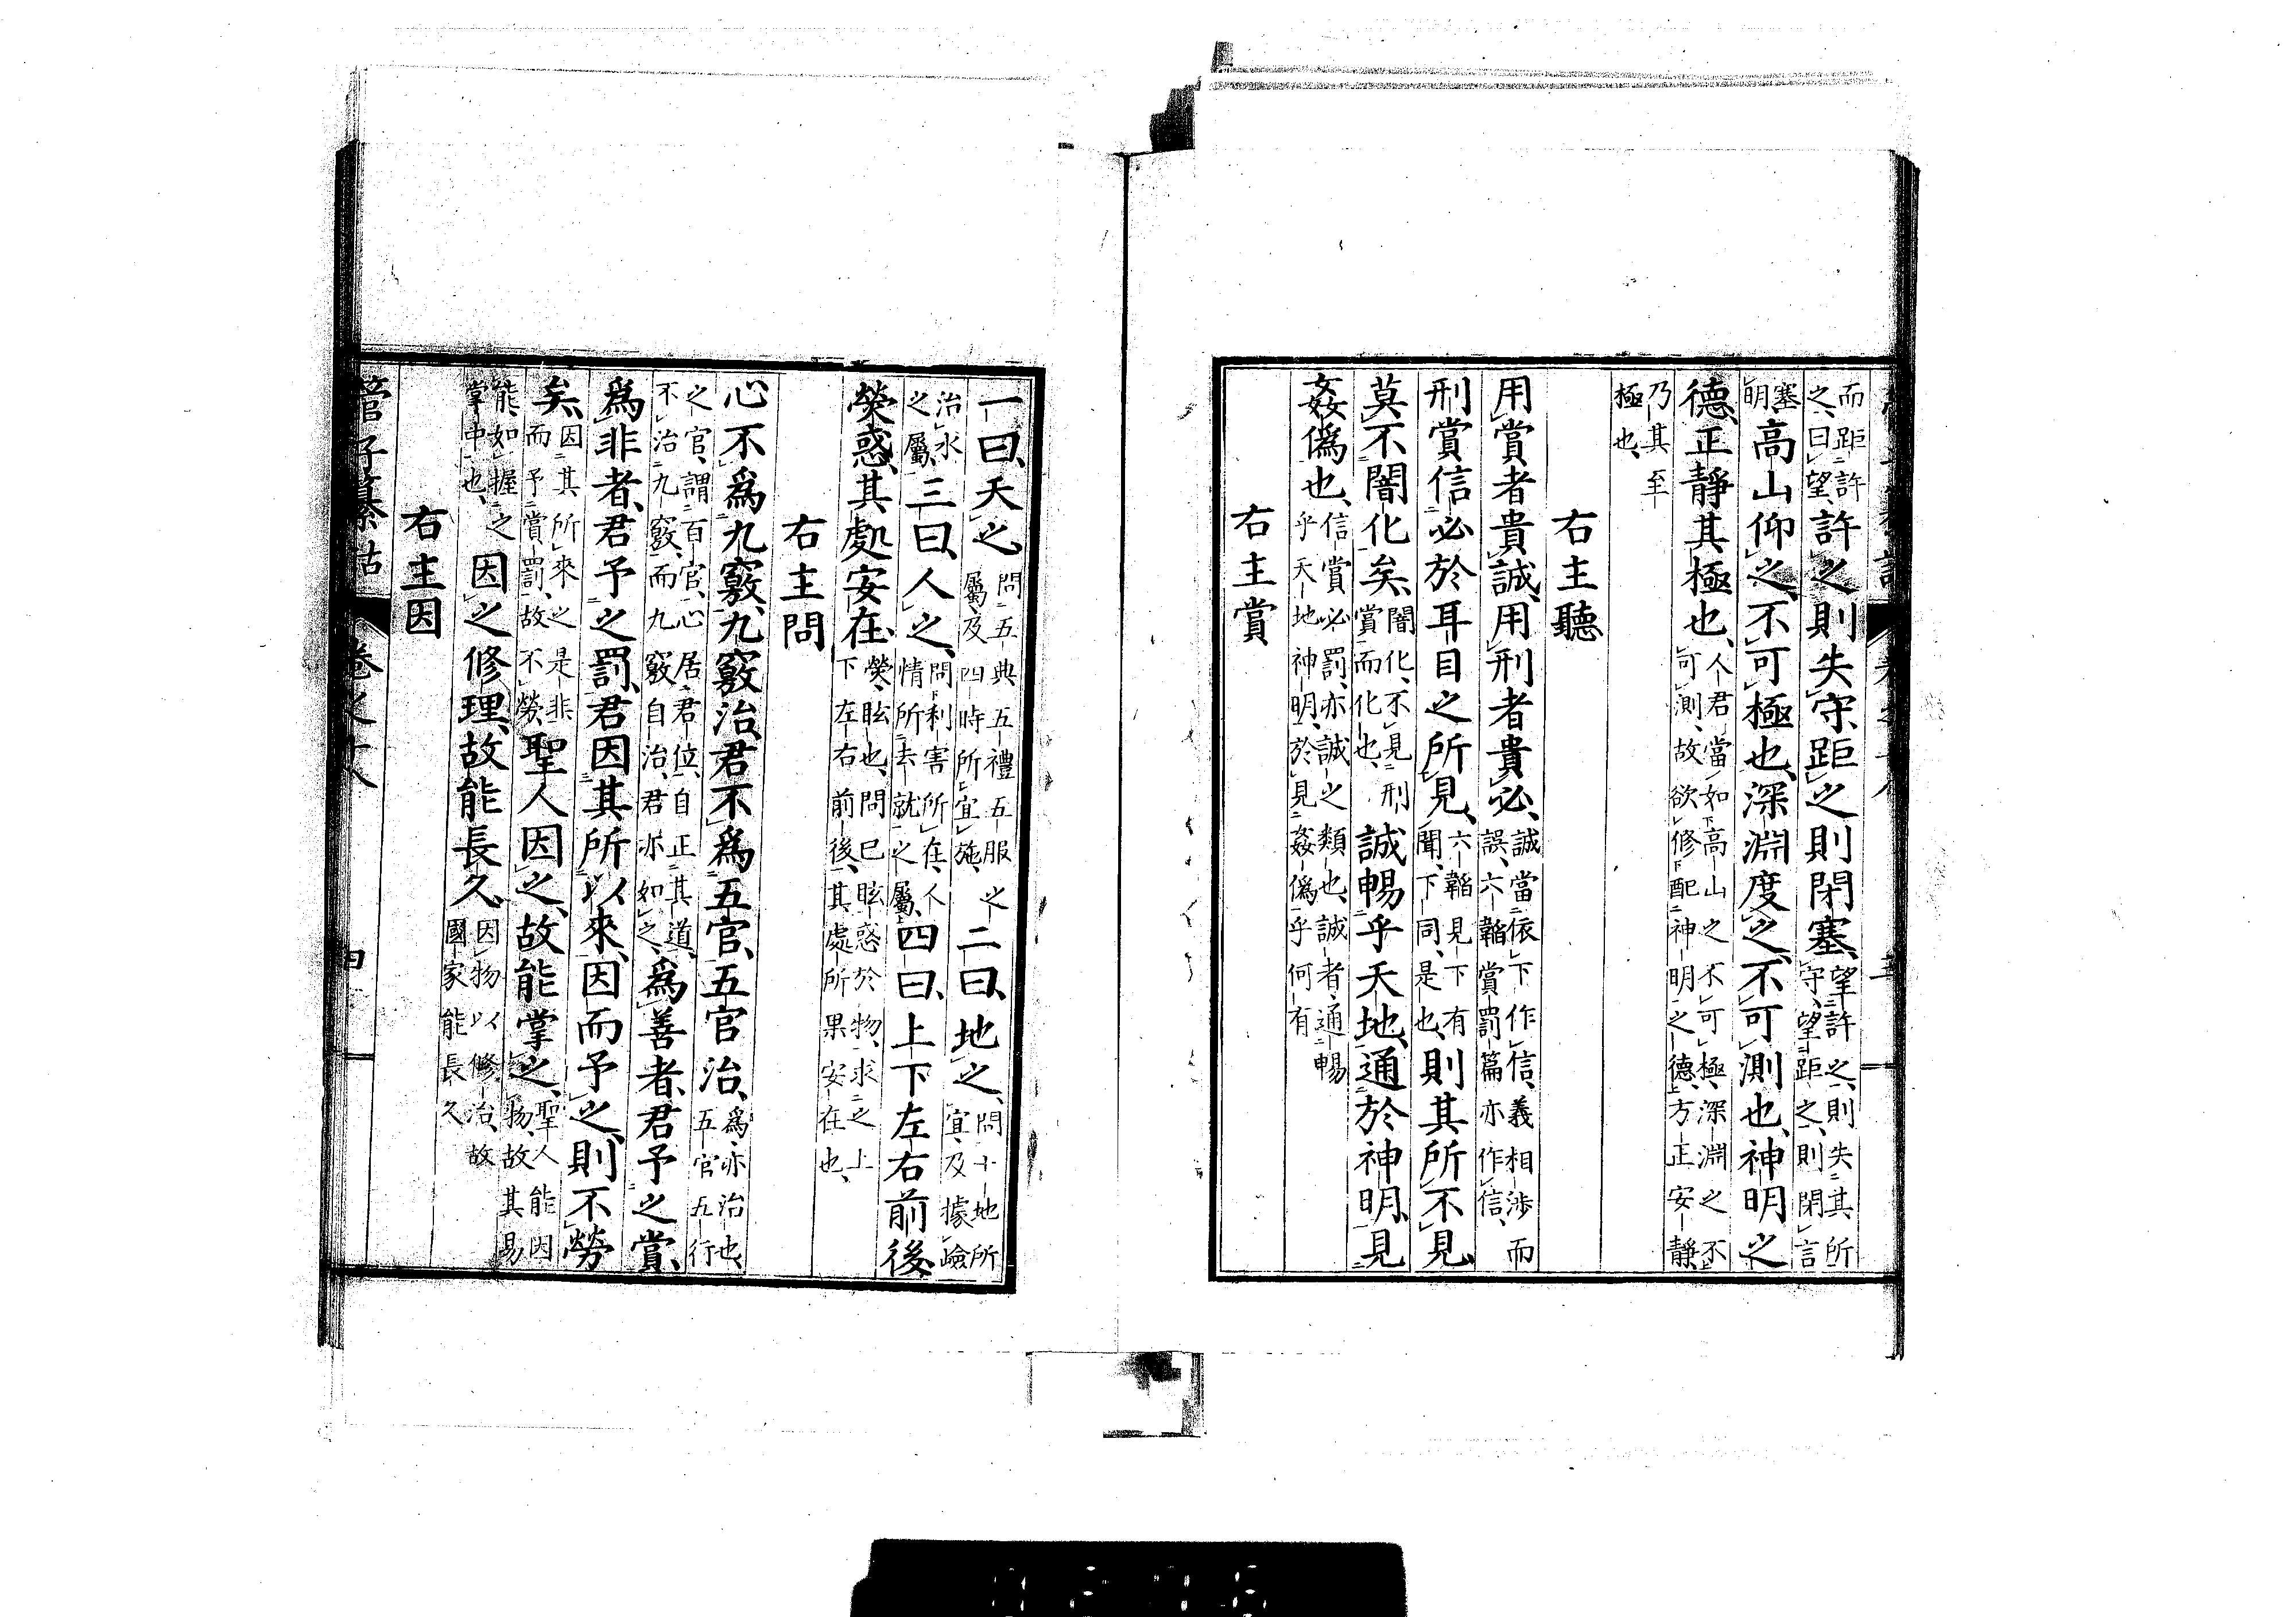 而距許
之曰望許之則失守距之則閉塞望許之則失其所
守望距之則閉言
塞高山仰之不可極也深淵度之不可測也神明之
明
德正靜其極也人君當如高山之不可極深淵之不
可測故欲修配神明之德方正安靜
乃其至
極也
右主聽
用賞者貴誠用刑者貴必誠當依下作信義相涉而
誤六韜賞罰篇亦作信
刑賞信必於耳目之所見六韜見下有
聞下同是也則其所不見
莫不闇化矣闇化不見刑
賞而化也誠暢乎天地通於神明見
姦僞也信賞必罰亦誠之類也誠者通暢
乎天地神明於見姦僞乎何有
右主賞
一曰天之問五典五禮五服之
屬及四時所宜施二曰地之問十地所
宜及據嶮
治水
之屬三曰人之問利害所在人
情所去就之屬四曰上下左右前後
熒惑其處安在熒眩也問已眩惑於物求之上
下左右前後其處所果安在也
右主問
心不爲九竅九竅治君不爲五官五官治爲亦治也
五官五行
之官謂百官心居君位自正其道
不治九竅而九竅自治君亦如之爲善者君予之賞
爲非者君予之罰君因其所以來因而予之則不勞
矣因其所來之是非
而予賞罰故不勞聖人因之故能掌之聖人能因
物故其易
能如握之
掌中也因之修理故能長久因物以修治故
國家能長久
右主因
管子纂詁 卷之十八